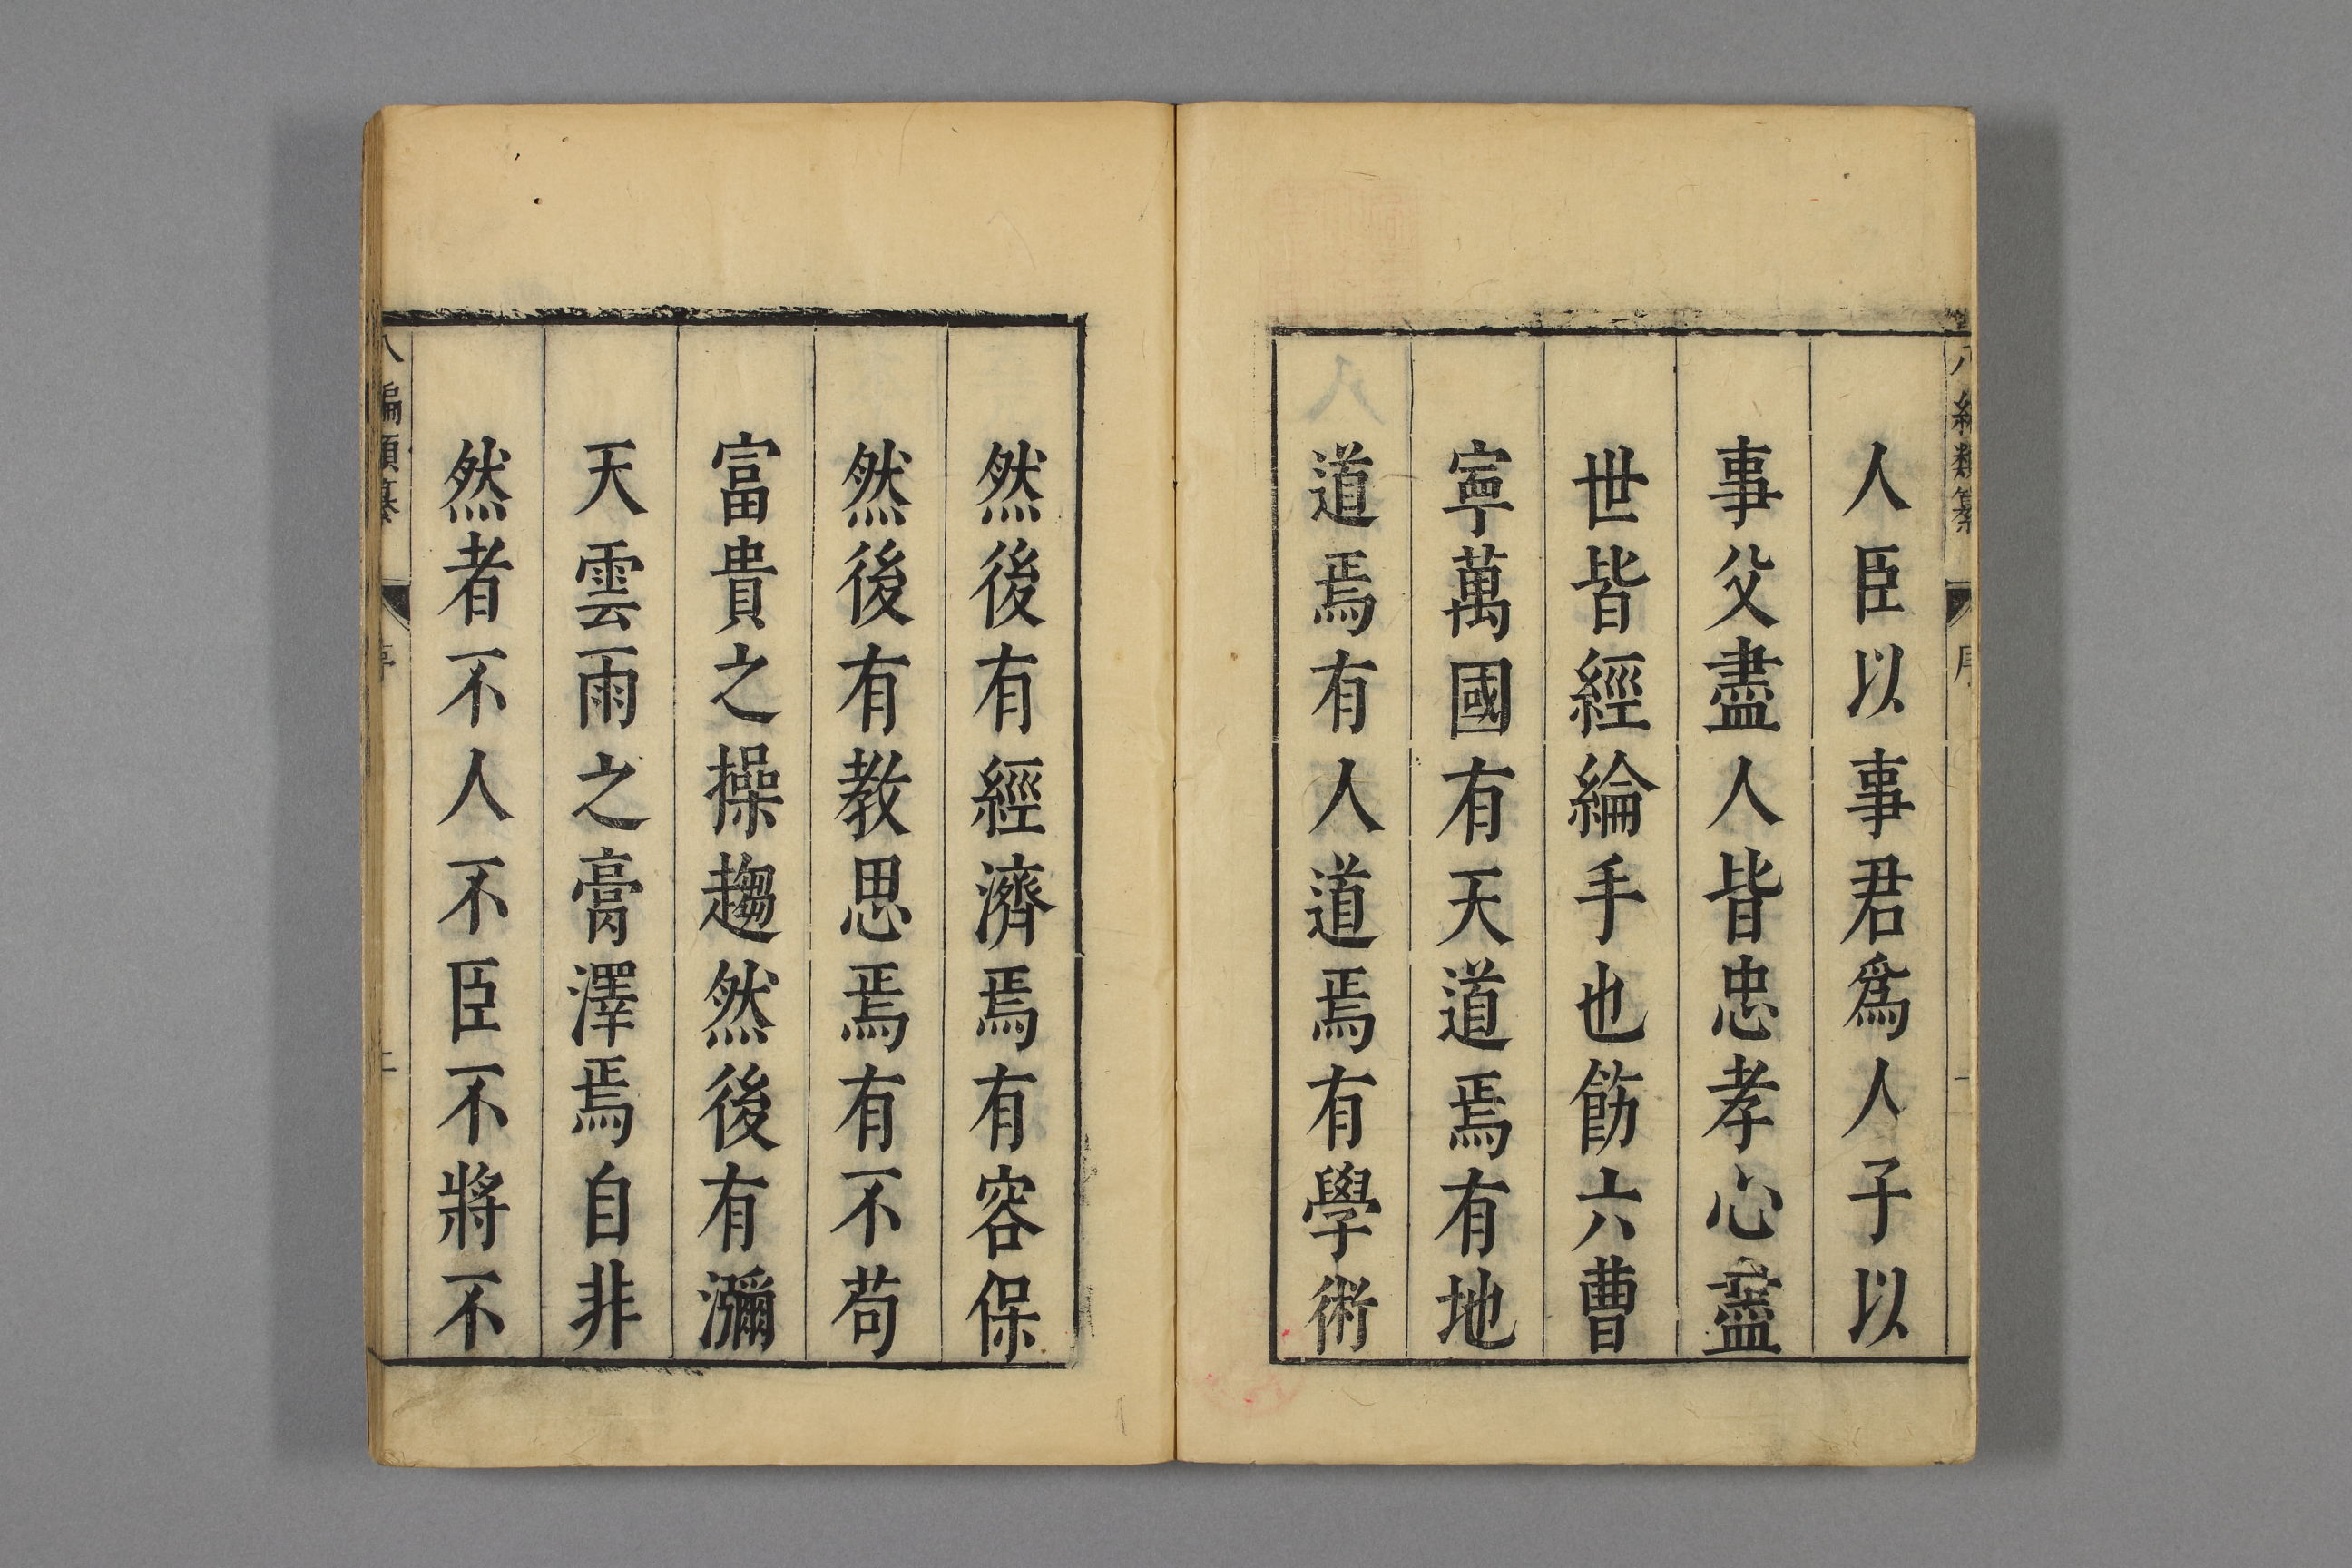 人臣以事君爲人子以
事父盡人皆忠孝心盡
世皆經綸手也飭六曹
寧萬國有天道焉有地
道焉有人道焉有學術
然後有經濟焉有容保
然後有教思焉有不苟
富貴之操趨然後有瀰
天雲雨之膏澤焉自非
然者不人不臣不將不
編類纂